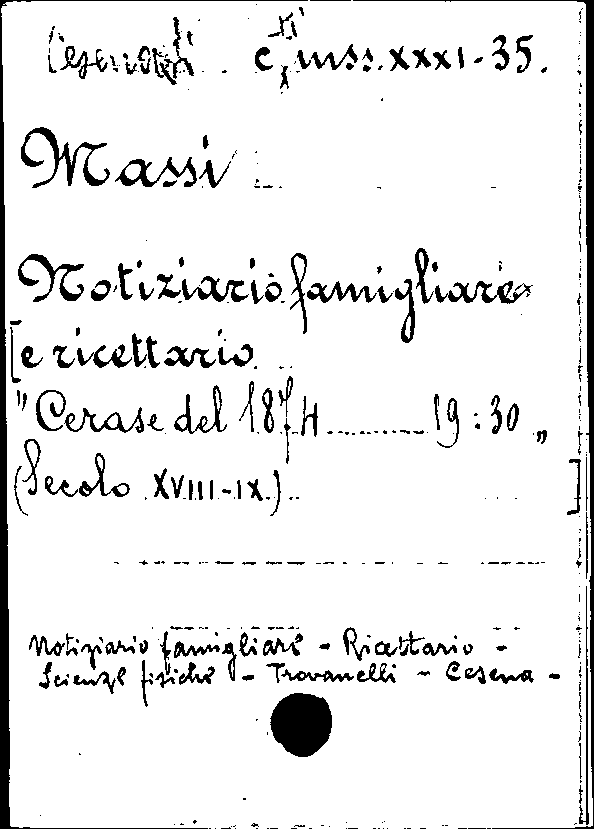 Cesenati. c. mss. XXXI-35.
Massi
Notiziario famigliare
[e ricettario
"Cerase del 1874 ........ 19:30 "
(Secolo XVIII-IX.) ]
Notiziario famigliare - Ricettario -
Scienze fisiche - Trovanelli - Cesena -